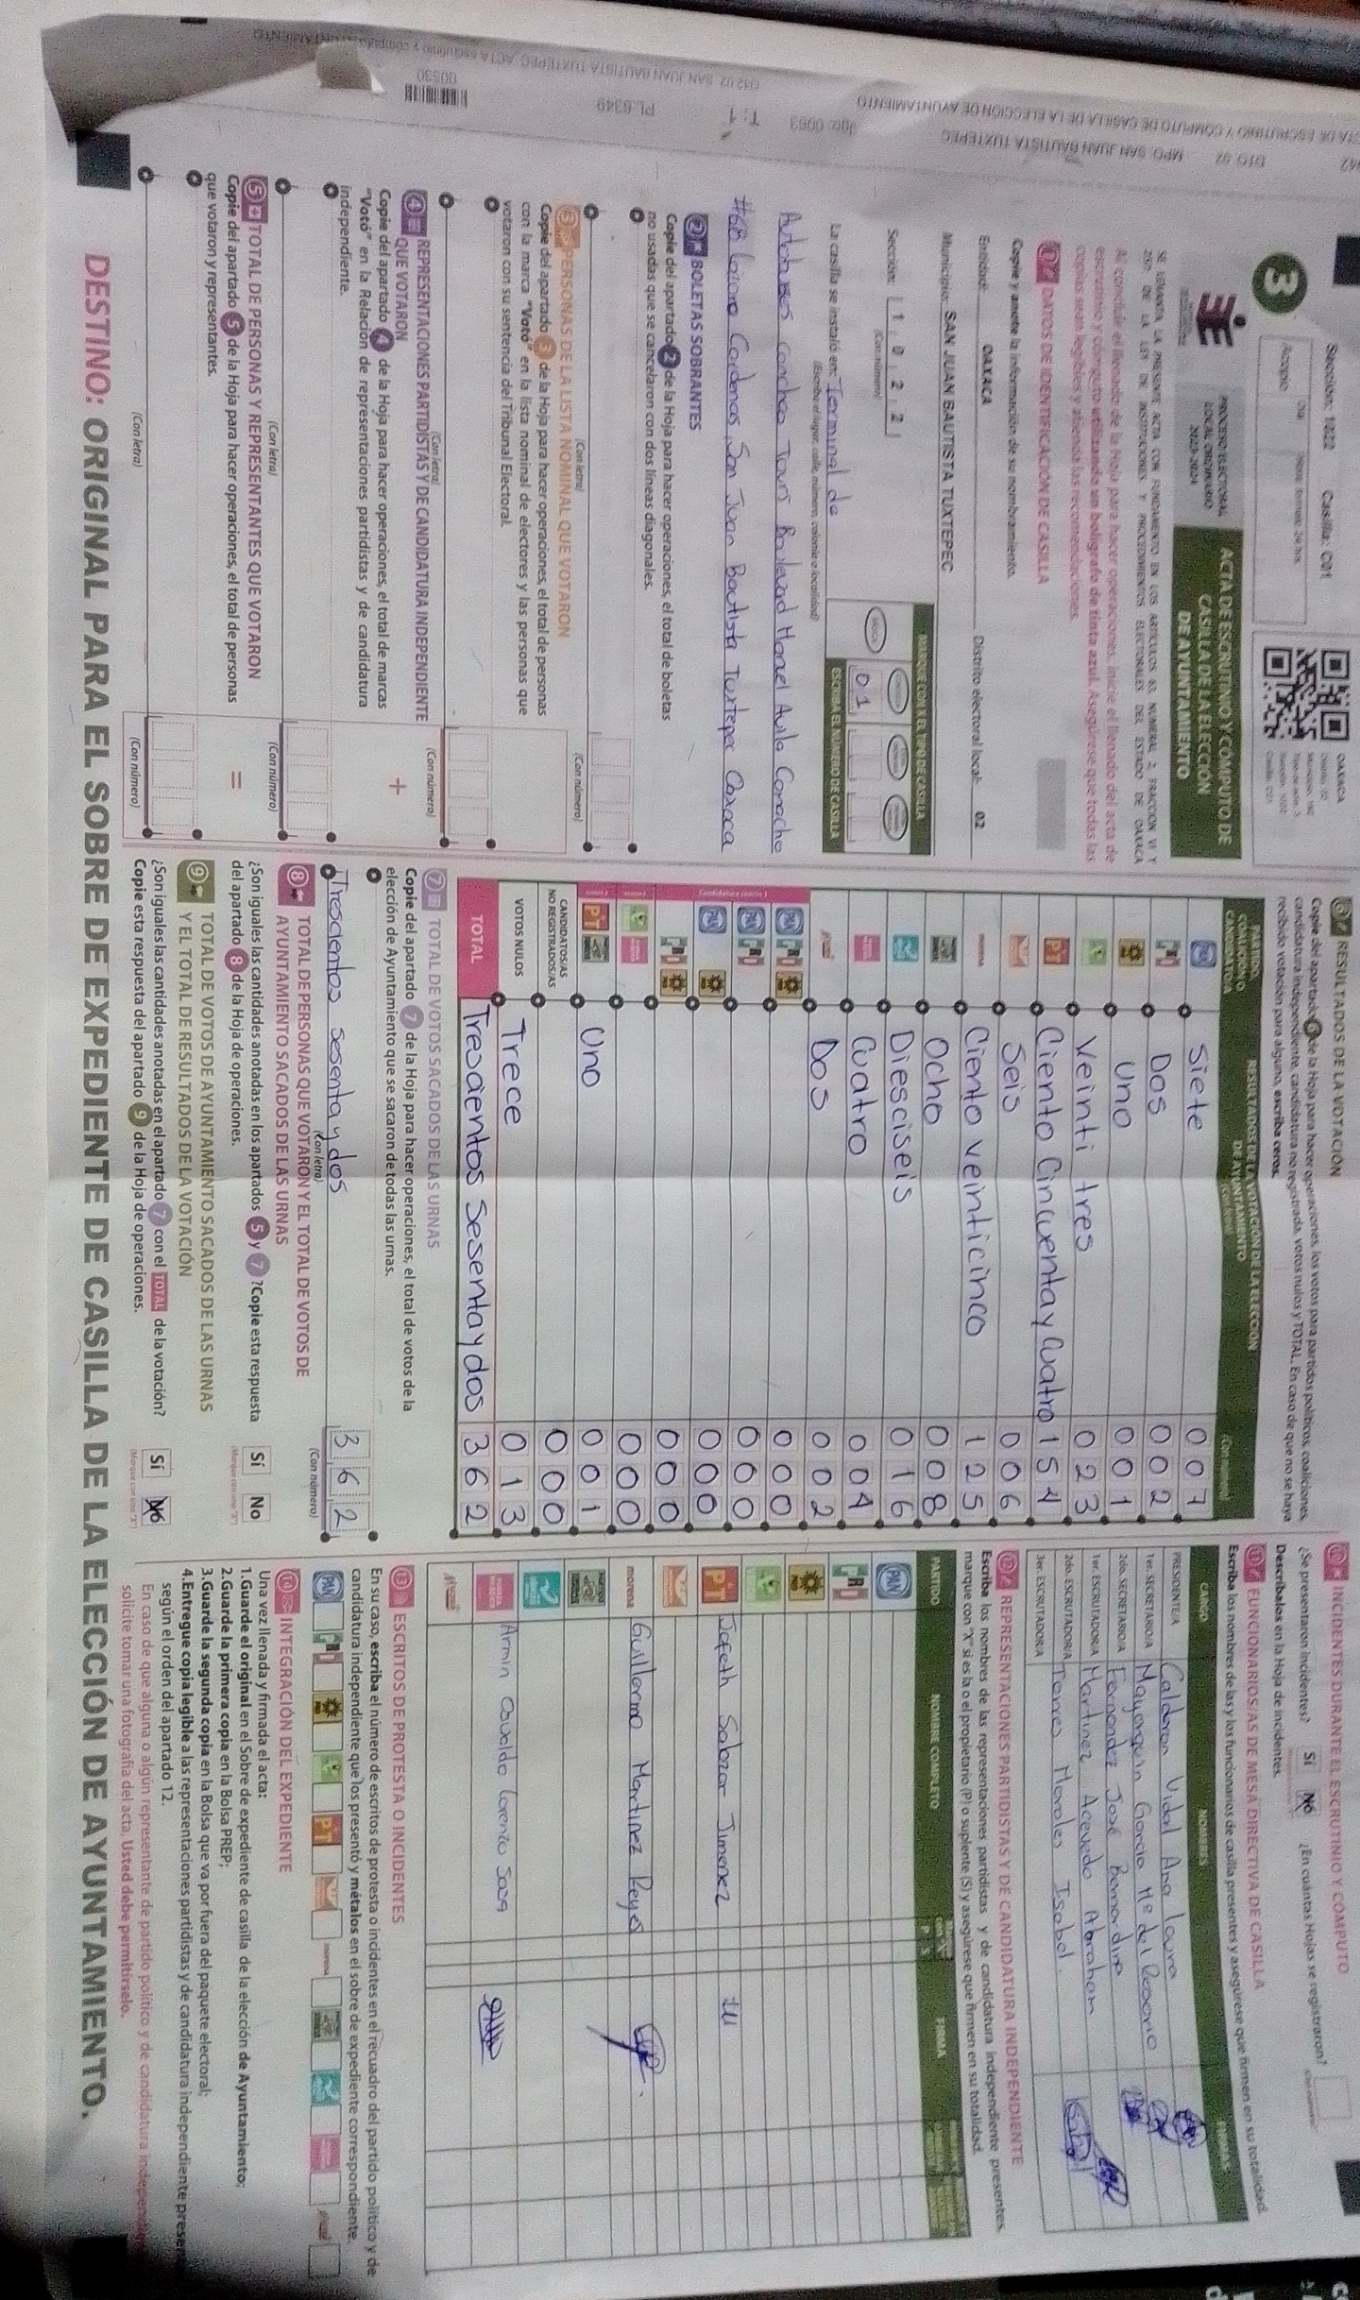 Sección: 1022 Casilla: C01
OAXACA
3
Acopio
PROCESO ELECTORAL
LOCAL ORDINARIO
2023-2024
ACTA DE ESCRUTINIO Y CÓMPUTO DE
CASILLA DE LA ELECCIÓN
DE AYUNTAMIENTO
SE LEVANTA LA PRESENTE ACTA CON FUNDAMENTO EN LOS ARTÍCULOS 63, NUMERAL 2, FRACCIÓN VI Y
257 DE LA LEY DE INSTITUCIONES Y PROCEDIMIENTOS ELECTORALES DEL ESTADO DE OAXACA
Al concluir el llenado de la Hoja para hacer operaciones, inicie el llenado del acta de
escrutinio y cómputo utilizando un bolígrafo de tinta azul. Asegúrese que todas las
copias sean legibles y atienda las recomendaciones.
1 DATOS DE IDENTIFICACIÓN DE CASILLA
Copie y anote la información de su nombramiento.
Entidad: OAXACA Distrito electoral local: 02
Municipio: SAN JUAN BAUTISTA TUXTEPEC
Sección: 1 0 2 2
(Con número)
MARQUE CON X EL TIPO DE CASILLA
01
ESCRIBA EL NÚMERO DE CASILLA
La casilla se instaló en: Terminal de
(Escriba el lugar, calle, número, colonia o localidad)
Autobuses conchas Tours Boulevard Manuel Avila Camacho
#68 Lazaro Cardenas, San Juan Bautista Tuxtepec Oaxaca
2 BOLETAS SOBRANTES
Copie del apartado 2 de la Hoja para hacer operaciones, el total de boletas
no usadas que se cancelaron con dos líneas diagonales.
(Con letra) (Con número)
3 PERSONAS DE LA LISTA NOMINAL QUE VOTARON
Copie del apartado 3 de la Hoja para hacer operaciones, el total de personas
con la marca "Votó" en la lista nominal de electores y las personas que
votaron con su sentencia del Tribunal Electoral.
(Con letra) (Con número)
4 REPRESENTACIONES PARTIDISTAS Y DE CANDIDATURA INDEPENDIENTE
QUE VOTARON
Copie del apartado 4 de la Hoja para hacer operaciones, el total de marcas
"Votó" en la Relación de representaciones partidistas y de candidatura
independiente.
+
(Con letra) (Con número)
5 TOTAL DE PERSONAS Y REPRESENTANTES QUE VOTARON
Copie del apartado 5 de la Hoja para hacer operaciones, el total de personas
que votaron y representantes.
=
(Con letra) (Con número)
6 RESULTADOS DE LA VOTACIÓN
Copie del apartado 6 de la Hoja para hacer operaciones, los votos para partidos políticos, coaliciones,
candidatura independiente, candidatura no registrada, votos nulos y TOTAL. En caso de que no se haya
recibido votación para alguno, escriba ceros.
PARTIDO,
COALICIÓN O
CANDIDATURA
RESULTADOS DE LA VOTACIÓN DE LA ELECCIÓN
DE AYUNTAMIENTO
(Con letra) (Con número)
PAN Siete 007
PRI Dos 002
PRD Uno 001
Veinti tres 023
PT Ciento Cincuenta y Cuatro 154
Seis 006
morena Ciento veinticinco 125
Ocho 008
Diesciseis 016
Cuatro 004
Dos 002
PAN PRI PRD 000
PAN PRI 000
PAN PRD 000
PRI PRD 000
000
PT Uno 001
CANDIDATOS/AS
NO REGISTRADOS/AS 000
VOTOS NULOS Trece 013
TOTAL Trescientos Sesenta y dos 362
7 TOTAL DE VOTOS SACADOS DE LAS URNAS
Copie del apartado 7 de la Hoja para hacer operaciones, el total de votos de la
elección de Ayuntamiento que se sacaron de todas las urnas.
Trescientos sesenta y dos 362
(Con letra) (Con número)
8 TOTAL DE PERSONAS QUE VOTARON Y EL TOTAL DE VOTOS DE
AYUNTAMIENTO SACADOS DE LAS URNAS
¿Son iguales las cantidades anotadas en los apartados 5 y 7? Copie esta respuesta
del apartado 8 de la Hoja de operaciones.
Sí No
9 TOTAL DE VOTOS DE AYUNTAMIENTO SACADOS DE LAS URNAS
Y EL TOTAL DE RESULTADOS DE LA VOTACIÓN
¿Son iguales las cantidades anotadas en el apartado 7 con el TOTAL de la votación?
Copie esta respuesta del apartado 9 de la Hoja de operaciones.
Sí No
INCIDENTES DURANTE EL ESCRUTINIO Y CÓMPUTO
¿Se presentaron incidentes? Sí No ¿En cuántas Hojas se registraron?
Descríbalos en la Hoja de incidentes.
11 FUNCIONARIOS/AS DE MESA DIRECTIVA DE CASILLA
Escriba los nombres de las y los funcionarios de casilla presentes y asegúrese que firmen en su totalidad.
CARGO NOMBRES FIRMAS
PRESIDENTE/A Calderon Vidal Ana laura
1er. SECRETARIO/A Mayorquin Garcia Ma del Rosario
2do. SECRETARIO/A Fernandez José Bernardino
1er. ESCRUTADOR/A Martinez Acevedo Abraham
2do. ESCRUTADOR/A Torres Morales Isabel.
3er. ESCRUTADOR/A
12 REPRESENTACIONES PARTIDISTAS Y DE CANDIDATURA INDEPENDIENTE
Escriba los nombres de las representaciones partidistas y de candidatura independiente presentes,
marque con "X" si es la o el propietario (P) o suplente (S) y asegúrese que firmen en su totalidad.
PARTIDO NOMBRE COMPLETO P S FIRMA
PAN
PRI
PRD
PT Jafeth Salazar Jimenez
morena Guillermo Martinez Reyes
Armin Osvaldo Lorenzo Sosa
13 ESCRITOS DE PROTESTA O INCIDENTES
En su caso, escriba el número de escritos de protesta o incidentes en el recuadro del partido político y de
candidatura independiente que los presentó y métalos en el sobre de expediente correspondiente.
PAN PRI PRD PT morena
INTEGRACIÓN DEL EXPEDIENTE
Una vez llenada y firmada el acta:
1.Guarde el original en el Sobre de expediente de casilla de la elección de Ayuntamiento;
2.Guarde la primera copia en la Bolsa PREP;
3.Guarde la segunda copia en la Bolsa que va por fuera del paquete electoral;
4.Entregue copia legible a las representaciones partidistas y de candidatura independiente presen
según el orden del apartado 12.
En caso de que alguna o algún representante de partido político y de candidatura independi
solicite tomar una fotografía del acta, Usted debe permitírselo.
DESTINO: ORIGINAL PARA EL SOBRE DE EXPEDIENTE DE CASILLA DE LA ELECCIÓN DE AYUNTAMIENTO.
DTO. 02 MPO. SAN JUAN BAUTISTA TUXTEPEC
CTA DE ESCRUTINIO Y CÓMPUTO DE CASILLA DE LA ELECCIÓN DE AYUNTAMIENTO
Jgo: 0053 T: 1 PL.6349
00530